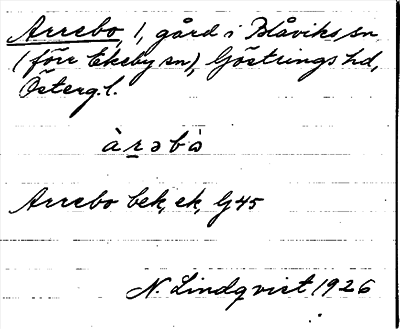 Arrebo, 1, gård i Blåviks sn,
(förr Ekeby sn), Göstrings hd,
Österg. l.
àrəbò
Arrebo bek, ek, G45
N. Lindqvist 1926